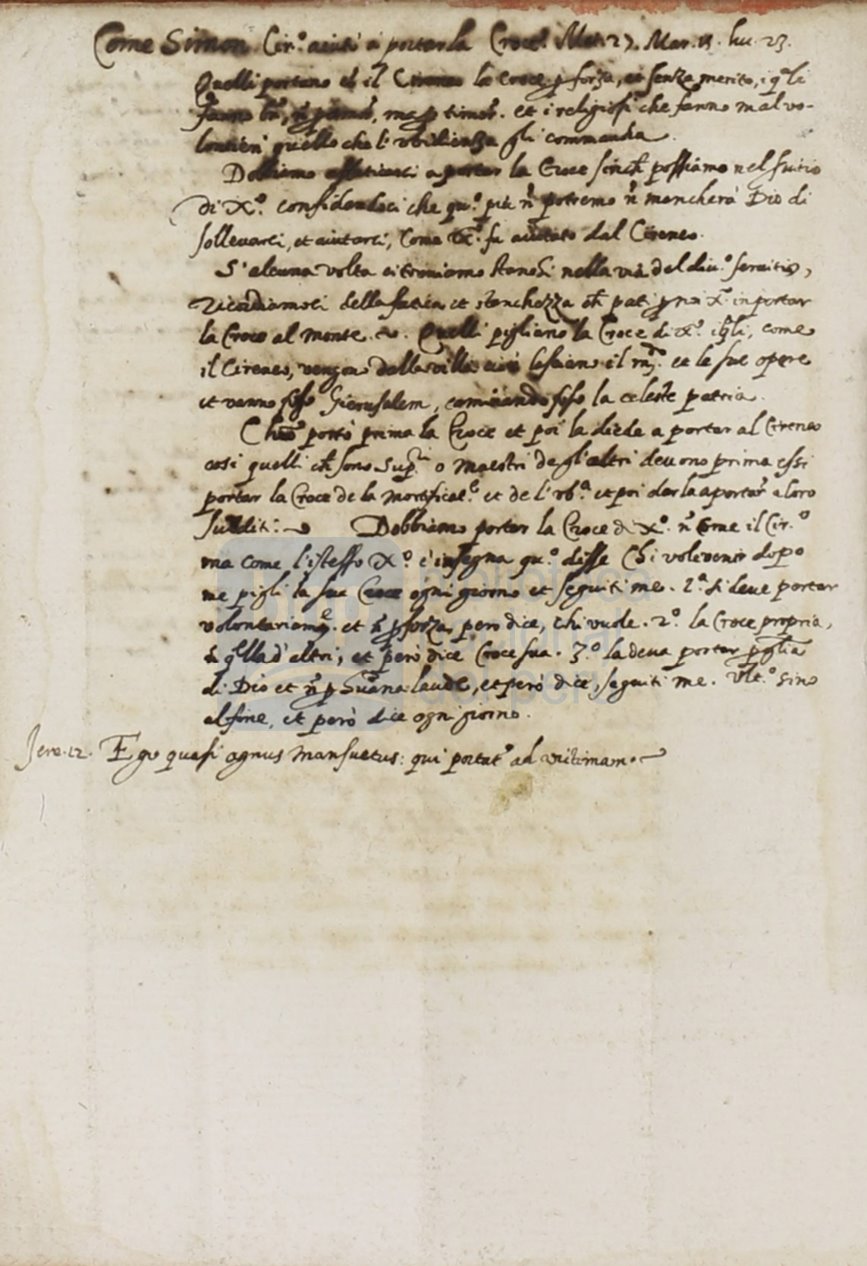 Come Simon Cir.º aiutò a portar la Croce. Mat. 27. Mar. 15. luc. 23.
Quelli portano cõ il Cireneo la Croce p forza, et senza merito, i q.li
fanno bñ, ñ p amor, ma p timor. et i religiosi che fanno mal vo-
lontieri quello che l'ubidienza gli commanda.
Dobbiamo affaticarci a portar la Croce sinch̃ possiamo nel seruitio
di Xº. confidandoci che quº. più ñ potremo ñ mancherà Dio di
solleuarci, et aiutarci, Come Xº. fu aiutato dal Cireneo.
S'alcuna volta ci trouiamo stanchi nella via del diu.º seruitio,
Ricordiamoci della fatica et stanchezza ch̃ patì p noi Xº in portar
la Croce al monte. Quelli pigliano la Croce di Xº. i q̃li, come
il Cireneo, vengon dalla villa cioè lasciano il et le sue opere
et vanno Gierusalem, caminando la celeste patria.
Chr̃o portò prima la Croce et poi la diede a portar al Cireneo
così quelli ch̃ sono Sup.ri o Maestri degl'altri deuono prima essi
portar la Croce de la mortificat.e et de l'ub.ª et poi darla a portar a loro
sudditi. Dobbiamo portar la Croce di Xº. ñ come il Cir.º
ma come l'istesso Xº. c'insegna quº. disse Chi vol venir dopo
me pigli la sua Croce ogni giorno et seguiti me. 1.ª si deue portar
volontariamẽ. et ñ p forza, però dice, chi vuole. 2.º la Croce propria,
ñ q̃lla d'altri, et però dice Croce sua. 3.º la deua portar p gloria
di Dio et ñ p humana laude, et però dice, seguiti me. Vlt.º sino
al fine, et però dice ogni giorno.
Jere. 12. Ego quasi agnus mansuetus: qui portat.r ad victimam.